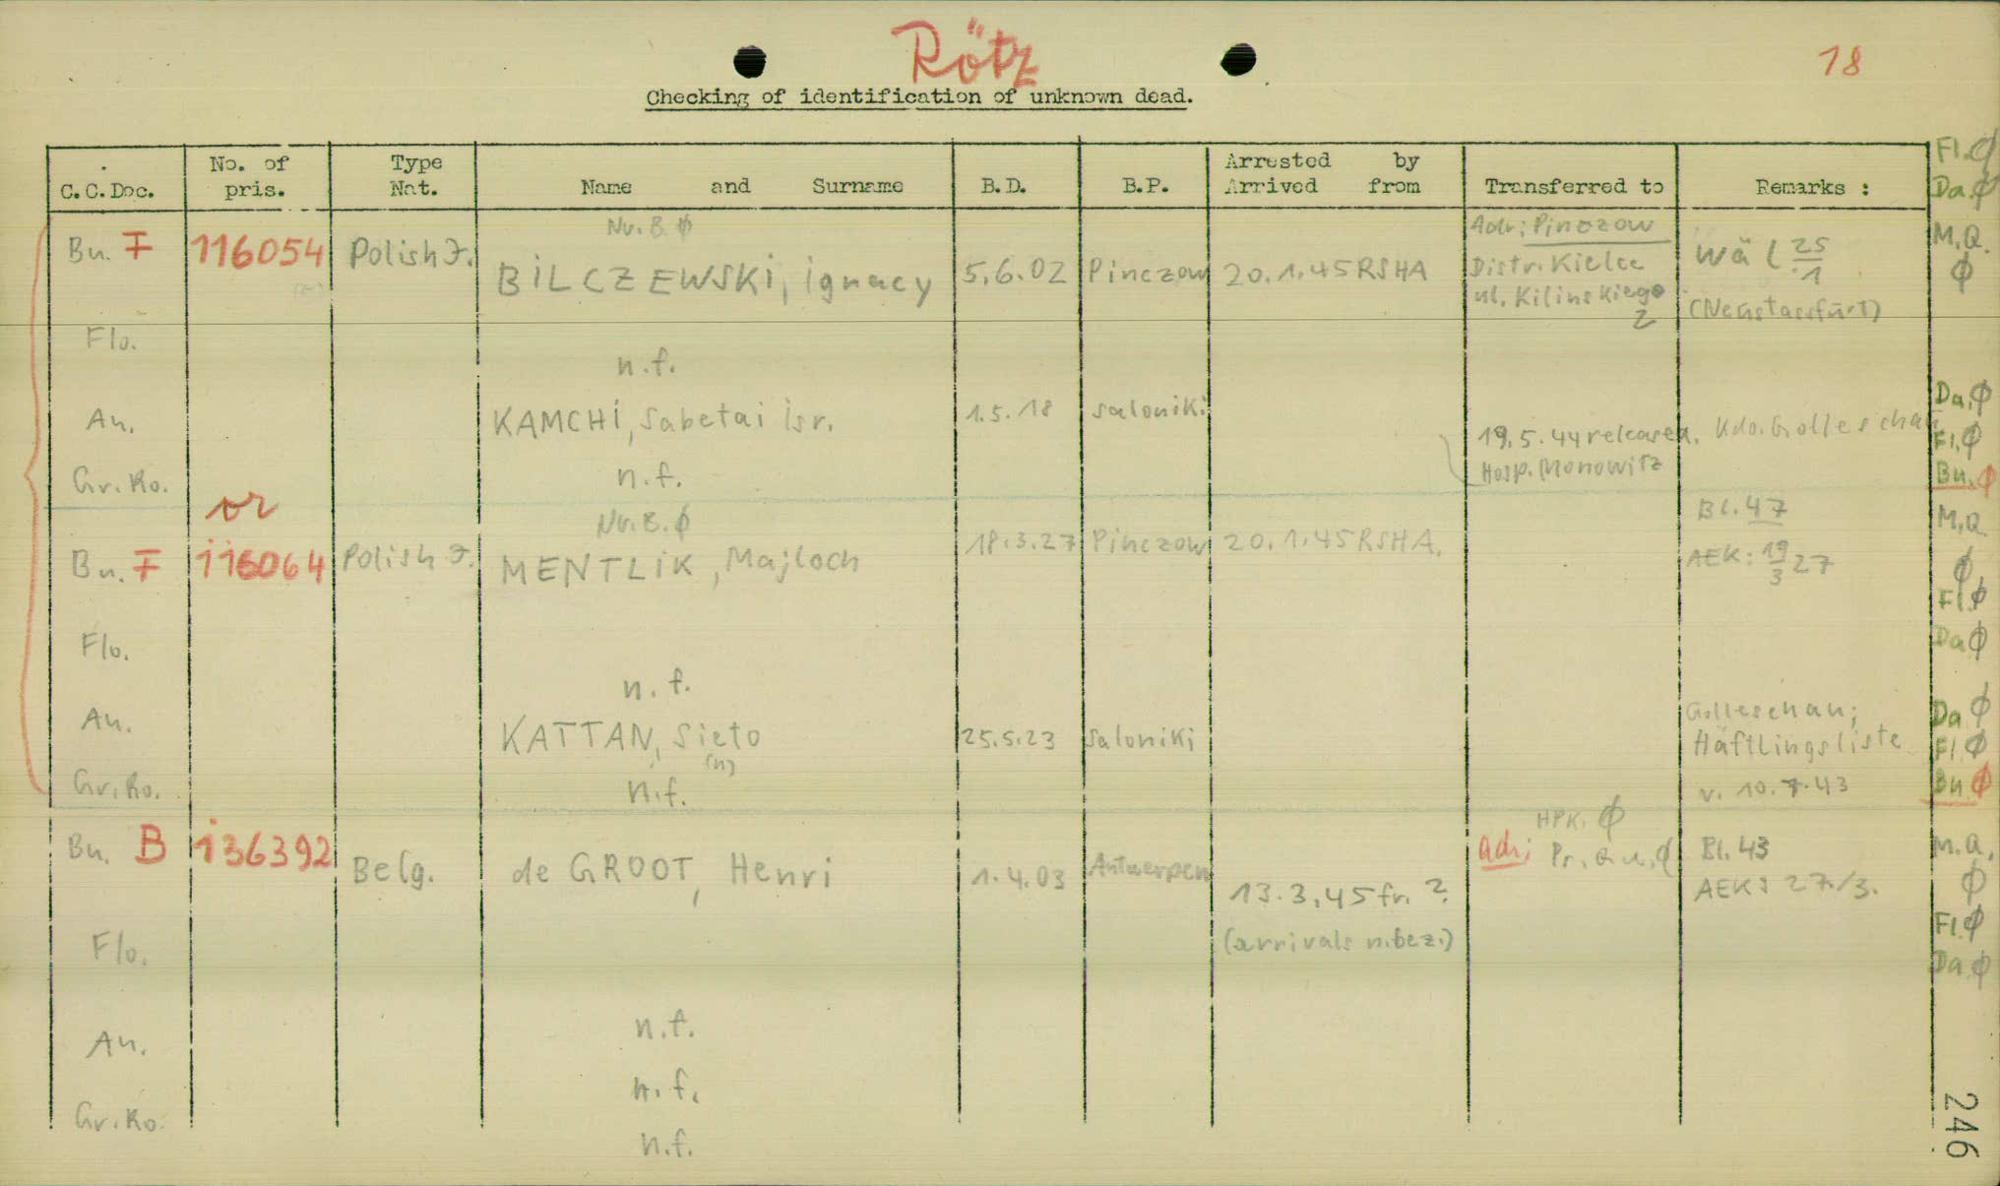 Rötz
18
Checking of identification of unknown dead.
C.C.Doc. No. of pris. Type Nat. Name and Surname B.D. B.P. Arrested by Arrived from Transferred to Remarks :
Fl. ϕ
Da. ϕ
Nr. B. ϕ
Bu. F 116054 Polish J. BILCZEWSKI, Ignacy 5.6.02 Pinczow 20.1.45 RSHA
Adr: Pinczow
Distr. Kielce
ul. Kilinskiego
2
Wäl 25/1
(Neustassfurt)
M.Q.
ϕ
Flo. n.f.
An. KAMCHI, Sabetai Isr. 1.5.18 Saloniki
19.5.44 released.
Hosp. Monowitz
Kdo. Golleschau
Da. ϕ
Fl. ϕ
Bu. ϕ
Gr.Ko. n.f.
or
Nr. B. ϕ
Bu. F 116064 Polish J. MENTLIK, Majloch 18.3.27 Pinczow 20.1.45 RSHA.
Bl. 47
AEK: 19/3 27
M.Q.
ϕ
Fl. ϕ
Da ϕ
Flo. n.f.
An. KATTAN, Sieto 25.5.23 Saloniki
(n)
Golleschau;
Häftlingsliste
v. 10.7.43
Da ϕ
Fl. ϕ
Bu ϕ
Gr.Ko. n.f.
Bu. B 136392 Belg. de GROOT, Henri 1.4.03 Antwerpen
13.3.45 fr. ?
(arrivals n.bez.)
HPK. ϕ
Adr: Pr. Qu. ϕ
Bl. 43
AEK: 27./3.
M.Q.
ϕ
Fl. ϕ
Da. ϕ
Flo. n.f.
An. n.f.
Gr.Ko. n.f.
246